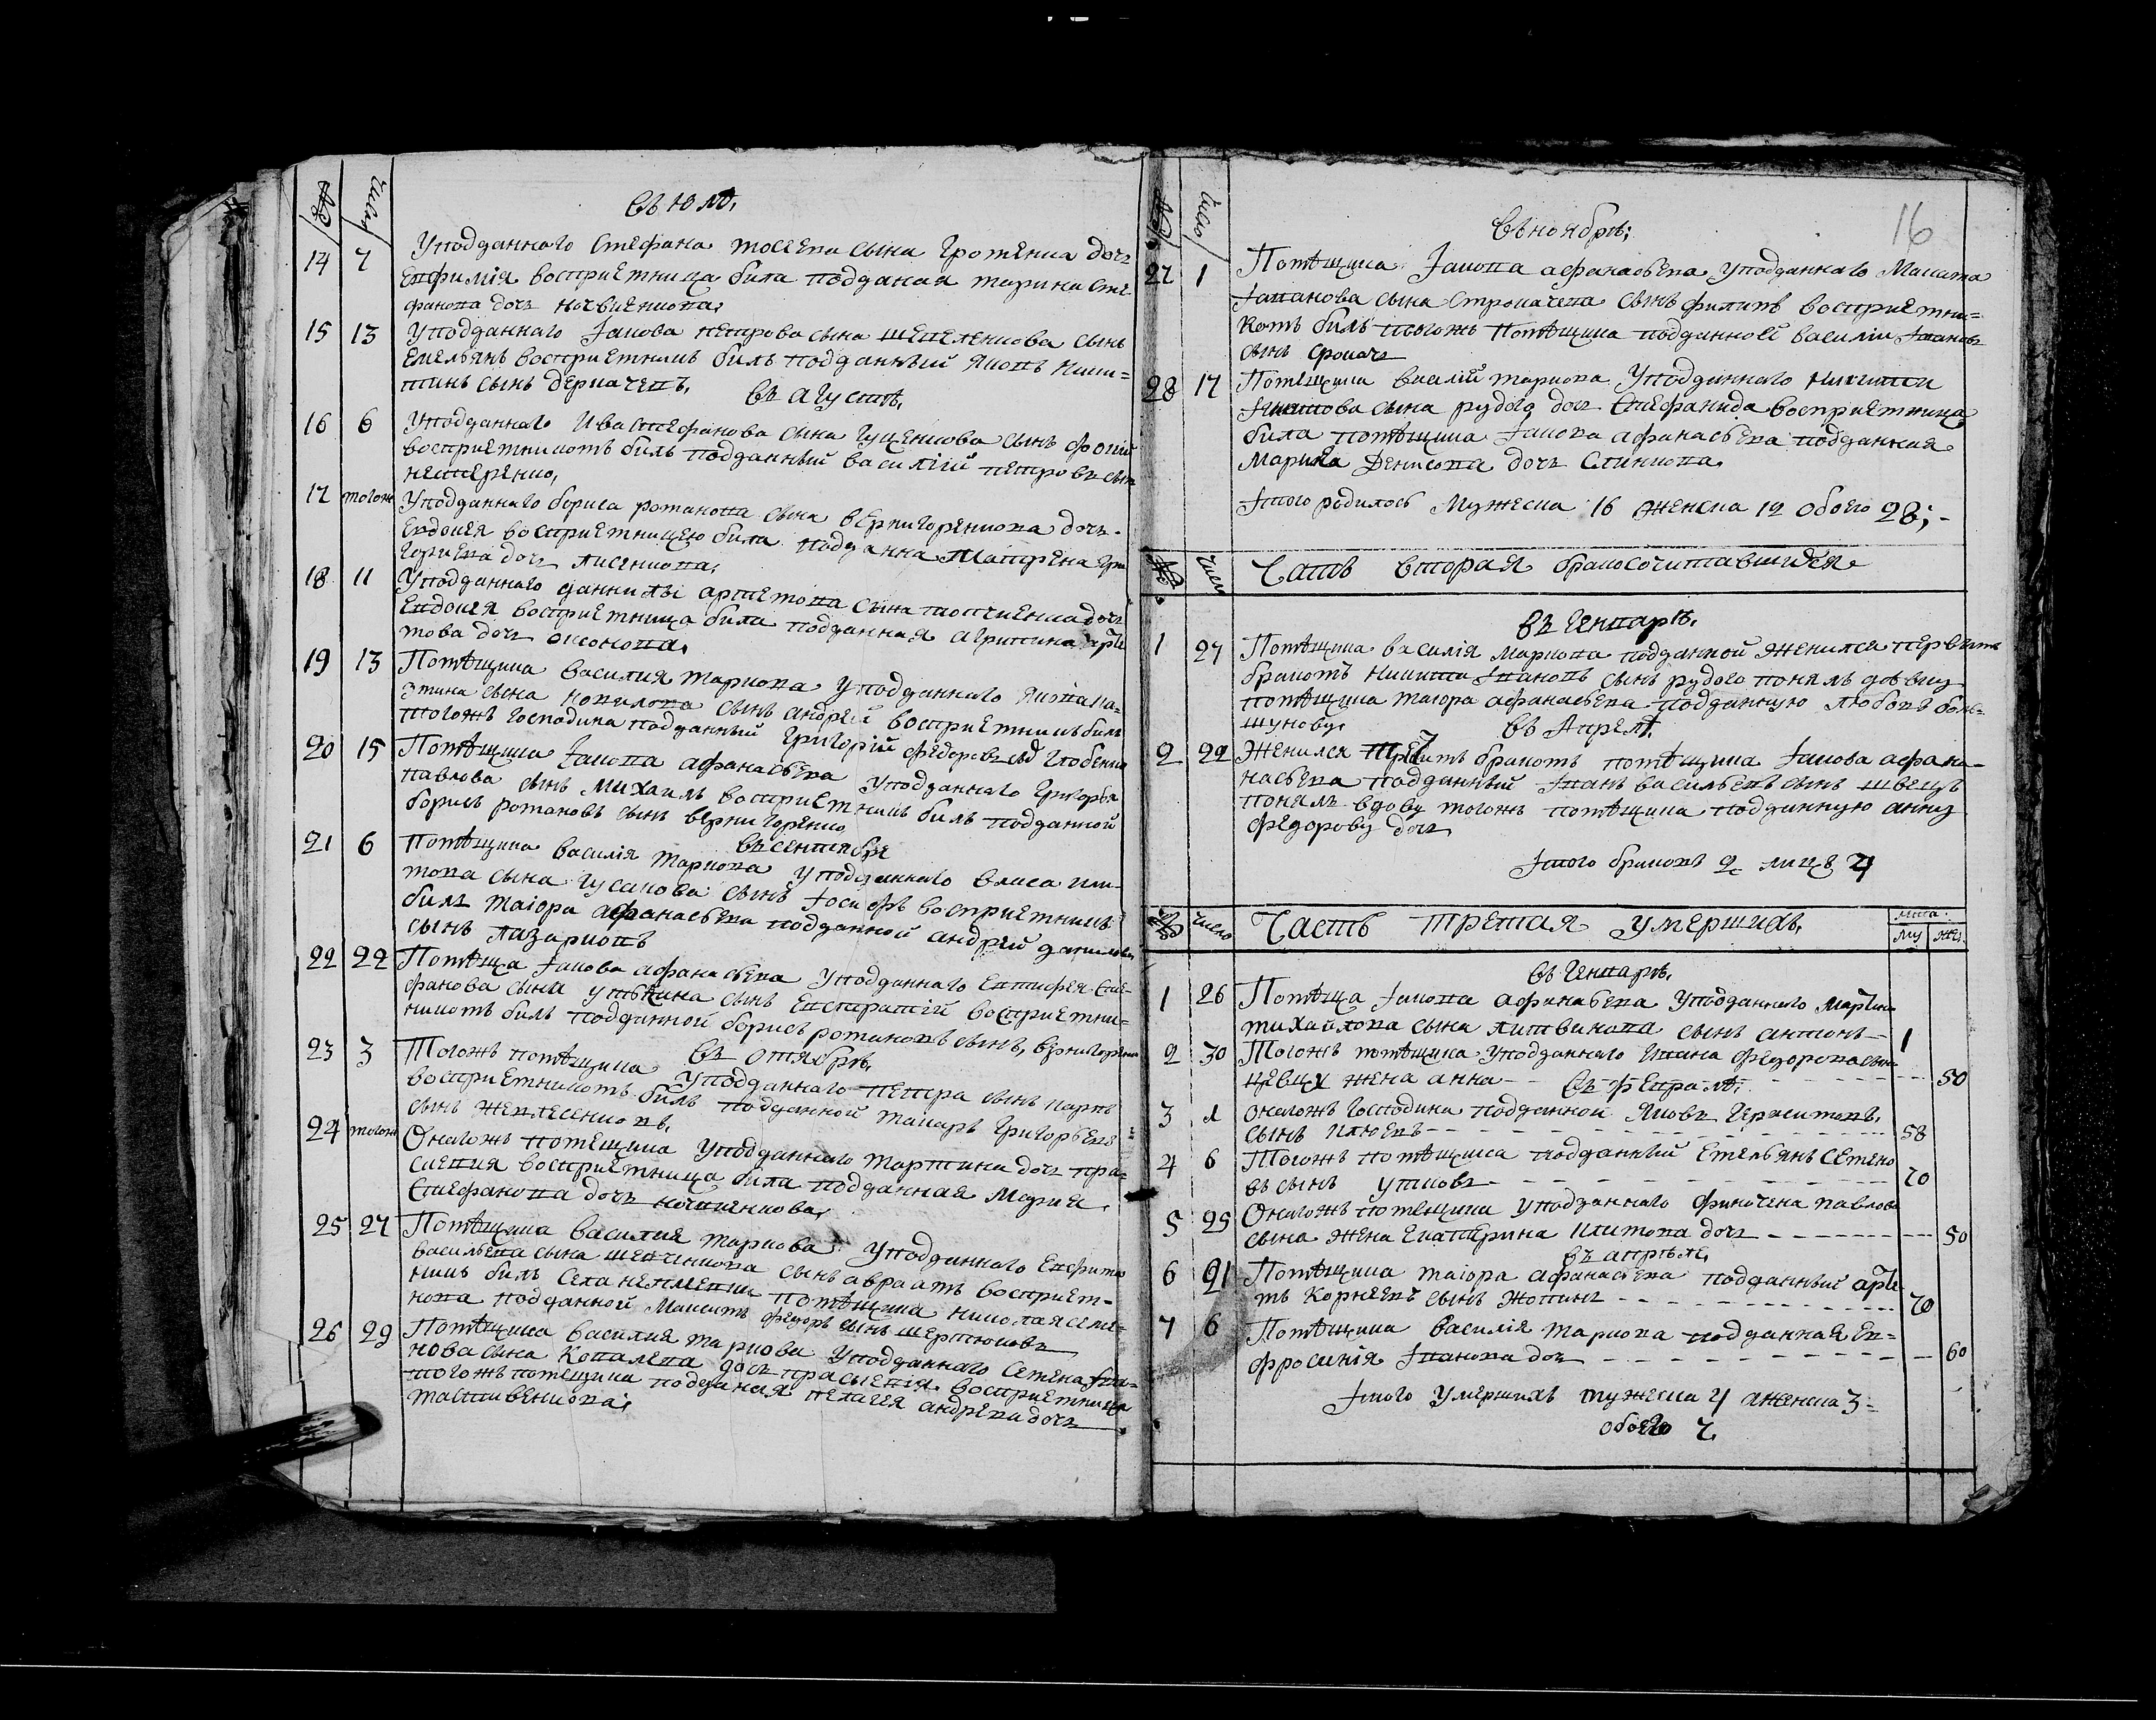 № Число
въ Юлѣ,
14 7 Уподданнаго Стефана сына дочь
Евфимія восприемница била подданая марина Сте
фанова дочь
15 13 Уподданнаго Іакова петрова сына сынъ
Емельянъ восприемникъ билъ подданный Яковъ Ники=
тинъ сынъ деркачевъ,
въ Августѣ,
16 6 Уподданнаго Стефанова сына Гуценкова сынъ
восприемникомъ билъ подданный василій петровъ сынъ
нестеренко,
17 тогожъ Уподданнаго бориса романова сына вернигоренкова дочь
Евдокея восприемницею била подданна Матфена Гри
гориева дочь лисенкова,
18 11 Уподданнаго данилы артемова сына дочь
Евдокея восприемница била подданная Агрипина
дочь
19 13 Помѣщика василия маркова уподданнаго Якова
сына копилова сынъ андрей восприемникъ билъ
тогожъ господина подданный Григорій федоровъ
20 15 Помѣщика Іакова афанасьева уподданнаго Григорья
павлова сынъ Михаилъ восприемникъ билъ подданной
борисъ романовъ сынъ вернигоренко
въ сентябре
21 6 Помѣщика василія маркова уподданнаго власа кли-
мова сына Гусакова сынъ Іосифъ восприемникъ
билъ маіора афанасьева подданной андрей даниловъ
сынъ лазарковъ
22 22 Помѣща Іакова афанасьева уподданнаго Евтифея Сте-
фанова сына сынъ Евстратій восприемни=
комъ билъ подданной борисъ романовъ сынъ, вернигоренко
въ октябрѣ,
23 3 Тогожъ помѣщика уподданнаго петра сынъ карпъ
восприемникомъ билъ подданной макаръ Григорьевъ
сынъ
24 тогожъ Онагожъ помещика уподданнаго мартина дочь пра-
скевия восприемница била подданная Мария
Стефанова дочь
25 27 Помѣщика василия маркова уподданнаго Евфима
васильева сына шевчикова сынъ авраамъ восприем=
никъ билъ села помѣщика николая семе-
нова подданной Максимъ федоръ сынъ
26 29 Помѣщика василия маркова уподданнаго Семена Ива-
нова сына Ковалева дочь праскевія восприемница
тогожъ помещика подданая пелагея андрева дочь

№ Число
16
въ ноябрѣ;
27 1 Помѣщика Іакова афанасьева уподданнаго Макита
Іванова сына Строкачева сынъ филипъ восприемни=
комъ билъ тогожъ помѣщика подданной василіи Івановъ
сынъ
28 17 Помѣщика василій маркова уподданнаго Никити
Іванова сына рудого дочь Стефанида восприемница
била помѣщика Іакова афанасьева подданная
Марина Денисова дочь
Ітого родилось Мужеска 16 женска 12 обоего 28;-
№ Число Часть вторая бракосочитавшихся
въ Генварѣ,
1 27 Помѣщика василія маркова подданной женился первымъ
бракомъ Никита Івановъ сынъ рудого понялъ девку
помѣщика маіора афанасьева подданную любовь боль=
шукову
въ Апрелѣ,
2 22 Женился третимъ бракомъ помѣщика Іакова афана-
насьева подданный Іванъ васильевъ сынъ швецъ
понялъ вдову тогожъ помѣщика подданную анну
федорову дочь
Ітого браковъ 2 лицъ 4
№ Число Часть третая умершихъ,
лѣта
му же.
въ Генварѣ,
1 26 Помѣща Іакова афанасьева уподданнаго Мартина
михайлова сына литвинова сынъ антонъ 1
2 30 Тогожъ помѣщика уподданнаго Івана федорова сына
жена анна 50
въ Февралѣ;
3 Онагожъ господина подданной Яковъ Герасимовъ,
сынъ 58
4 6 Тогожъ помѣщика подданный Емельянъ Семено
въ сынъ 70
5 25 Онагожъ помещика уподданнаго павлова
сына жена Екатерина Климова дочь 50
въ апрѣлѣ,
6 21 Помѣщика маіора афанасьева подданный арте
мъ Корнеевъ сынъ 70
7 6 Помѣщика василія маркова подданная Ев-
фросинія Іванова дочь 60
Ітого умершихъ мужеска 4 аженска 3=
обоего 7.